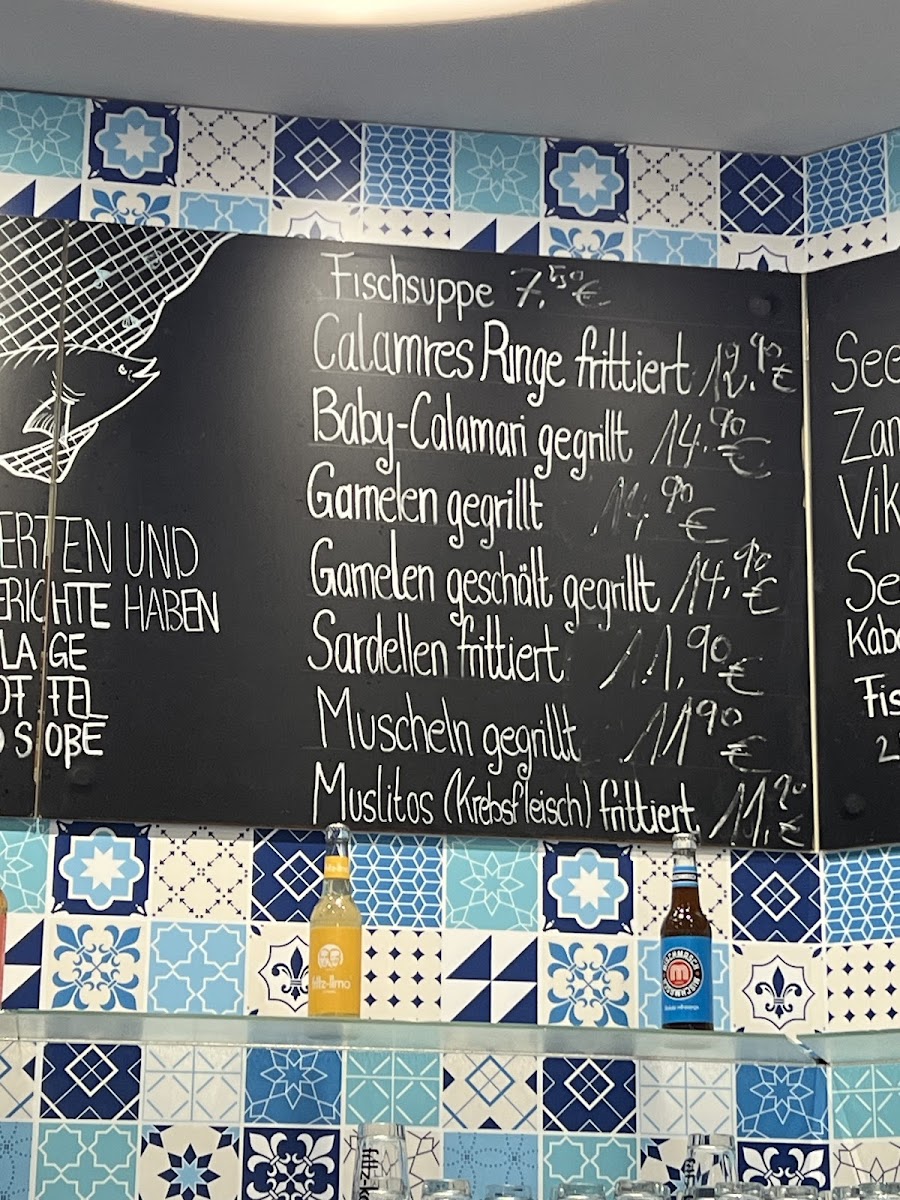 Fischsuppe 7,50€
Calamres Ringe frittiert 12,90€
Baby-Calamari gegrillt 14.90€
Garnelen gegrillt 14,90€
Garnelen geschält gegrillt 14,90€
Sardellen frittiert 11,90€
Muscheln gegrillt 11 90€
Muslitos (Krebsfleisch) frittiert 11,90€
ERTEN UND
ERICHTE HABEN
LAGE
OFFEL
SOßE
See
Zan
Vik
Se
Kab
Fis
2
fritz-limo